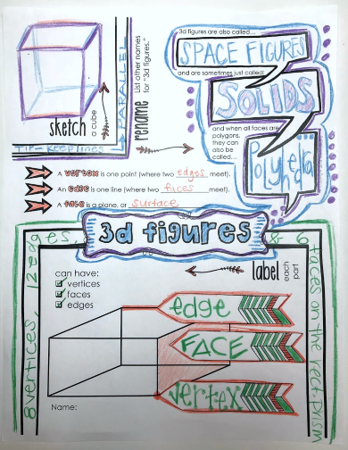 3d figures are also called...
SPACE FIGURES
and are sometimes just called
SOLIDS
and when all faces are
polygons,
they can
also be
called...
Polyhedra
sketch
a cube
TIP - KEEP lines
PARALLEL
rename
List other names
for "3d figures."
A vertex is one point (where two edges meet).
An edge is one line (where two faces meet).
A face is a plane, or surface
3d figures
8 vertices, 12 edges & 6 faces on the rect. prism
can have:
vertices
faces
edges
label
each
part
edge
FACE
vertex
Name: